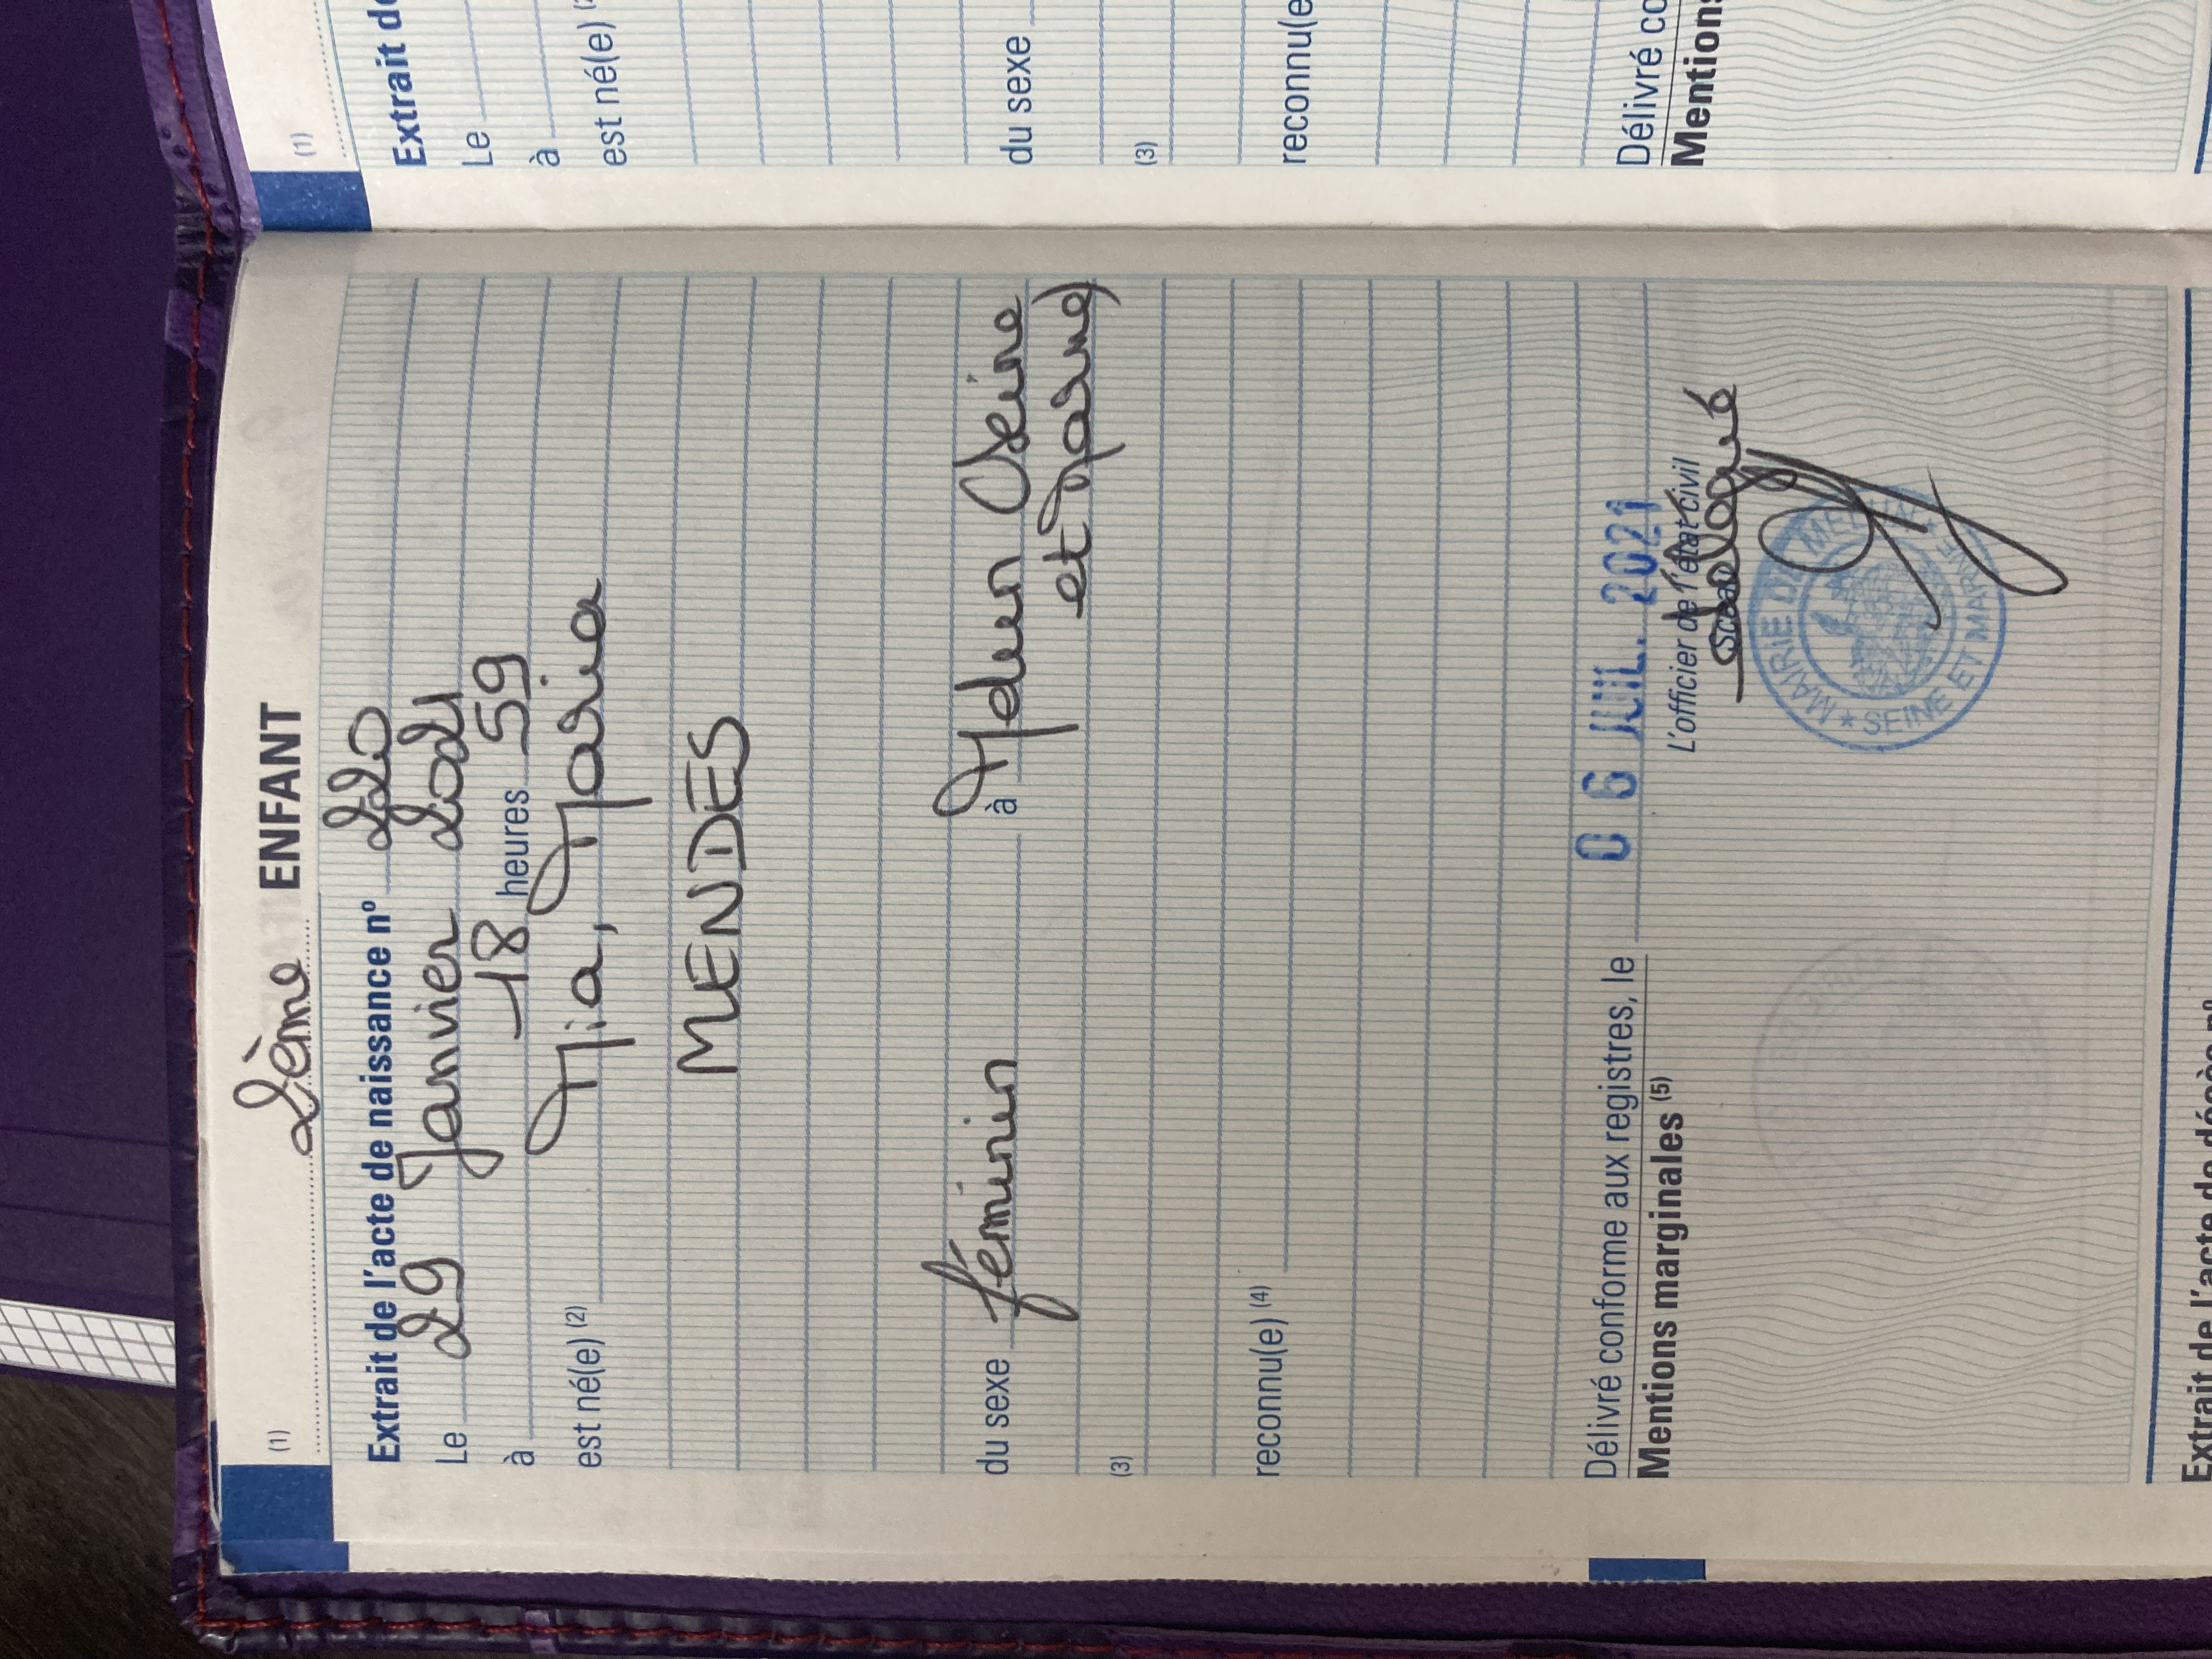 (1) 2ème ENFANT
Extrait de l'acte de naissance nº 220
Le 29 Janvier 2021
à 18 heures 59
est né(e) (2) Mia, Maria
MENDES
du sexe féminin à Melun (Seine
et Marne)
(3)
reconnu(e) (4)
Délivré conforme aux registres, le 06 JUIL. 2021
Mentions marginales (5)
L'officier de l'état civil
délégué
MAIRIE DE MELUN
* SEINE ET MARNE *
Extrait de l'acte de décès nº
(1)
Extrait de
Le
à
est né(e)
du sexe
(3)
reconnu(e
Délivré co
Mentions